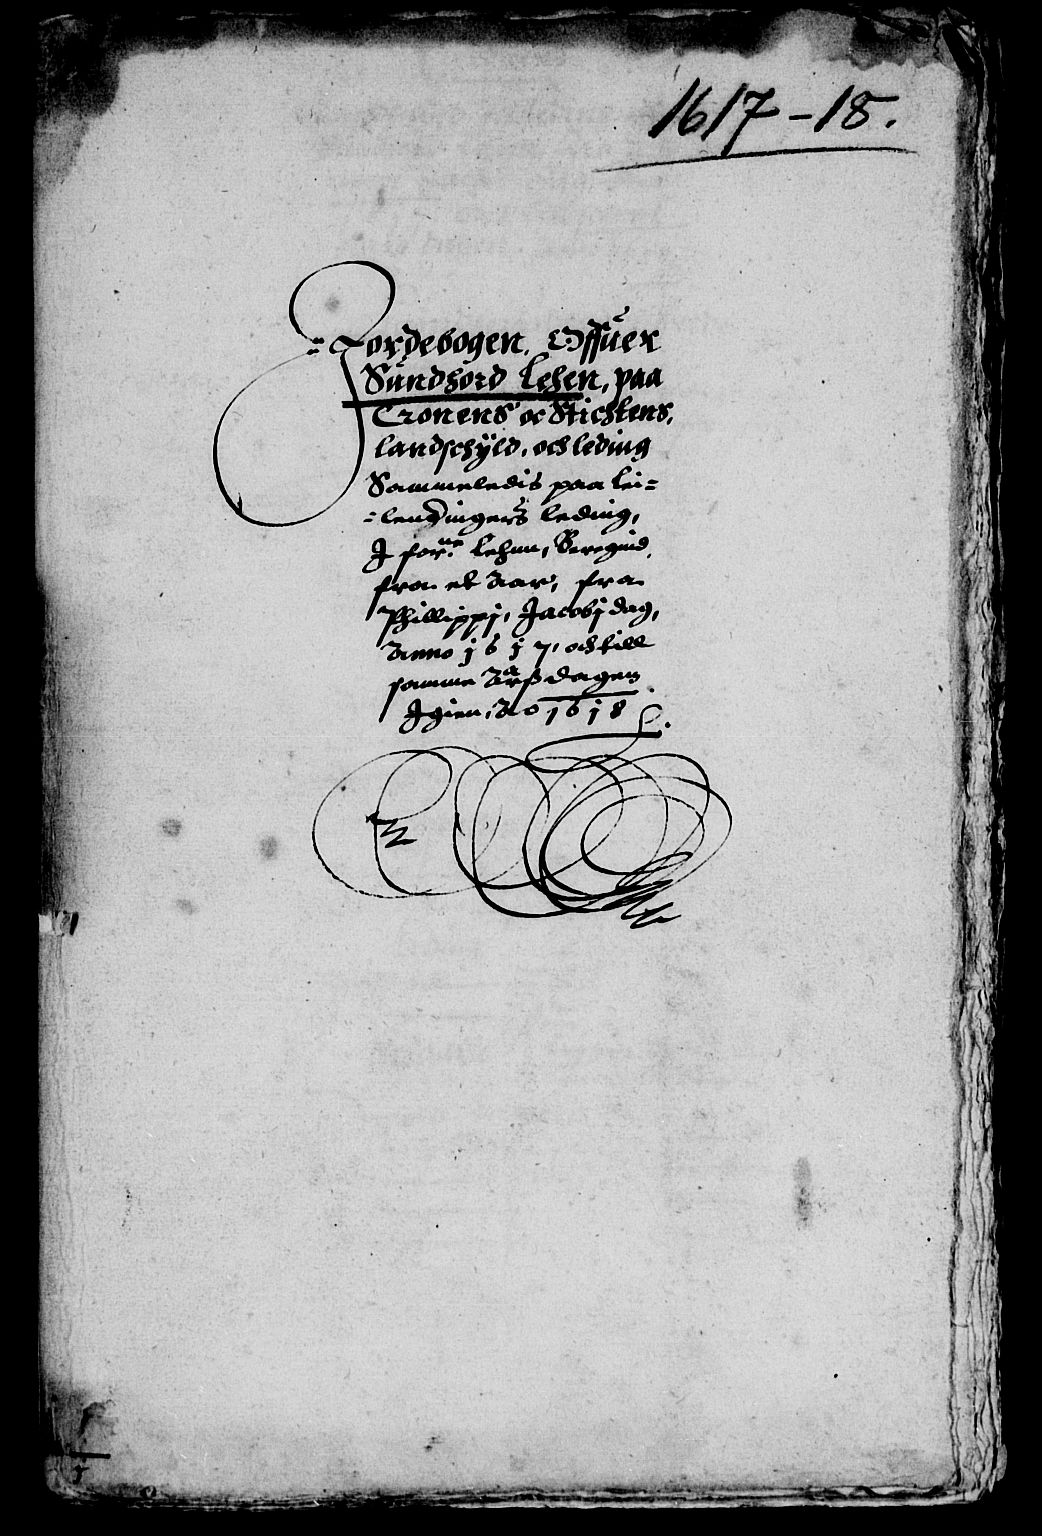 1617-18.
Jordebogen. Offuer
Sundhord Lehen, paa
Cronens oc Stichtens,
landschÿld, och leding
Sammeledis paa lei=
=lendingers leding,
J forne. Lehnn, Beregnid
fra et Aar, fra
Phillippj, Jacobj dag,
Anno 1617, och till
samme Aarß dagen
Jgien, Ao 1618